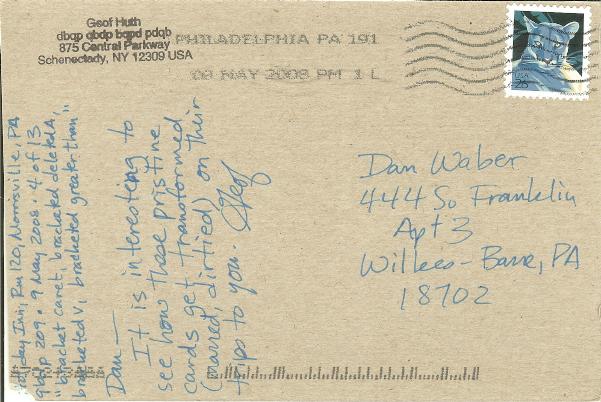 Geof Huth
dbqp qbdp bqpd pdqb
875 Central Parkway
Schenectady, NY 12309 USA
PHILADELPHIA PA 191
09 MAY 2008 PM 1 L
USA
26
Holiday Inn, Rm 120, Morrisville, PA
qbdp 209 • 9 May 2008 • 4 of 13
"bracket caret, bracketed deleted A,
bracketed v, bracketed greater than"
Dan—
It is interesting to
see how these pristine
cards get transformed
(marred, dirtied) on their
trips to you. Geof
Dan Waber
444 So Franklin
Apt 3
Wilkes-Barre, PA
18702